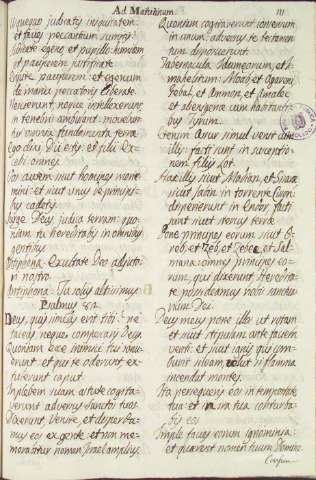 Ad Matutinum.
Usquequo judicatis iniquitatem
et facies peccatorum sumitis
Judicate egeno, et pupillo: humilem
et pauperem justificate
Eripite pauperem: et egenum
de manu peccatoris liberate.
Nescierunt, neque intellexerunt,
in tenebris ambulant: movebun-
tur omnia fundamenta terra.
Ego dixi Dii estis: et filii Ex-
celsi omnes.
Vos autem sicut homines morie
mini: et sicut unus de principi-
bus cadetis.
Surge Deus judica terram: quo-
niam tu hereditabis in omnibus
gentibus
Antiphona. Exultate Deo adjuto-
ri nostro.
Antiphona. Tu solus altissimus
Psalmus 82.
Deus, quis similis erit tibi: ne
taceas, neque compescaris Deus
Quoniam ecce inimici tui sonu-
erunt: et qui te oderunt, ex-
tulerunt caput.
Super populum tuum
verunt adversus sanctos tuos.
Dixerunt: Venite, et disperda-
mus eos de gente: et non me-
moretur nomen Israel amplius.
Quoniam cogitaverunt
in unum: adversum te testamen-
tum disposuerunt
Tabernacula Idumeorum, et Is-
mahelita: Moab, et Agareni
Gebal, et Ammon, et Amalec
et alienigena cum habitanti-
bus Tyrum.
Etenim Assur simul venit cum
illis: facti sunt in susceptio-
nem filiis Lot.
Fac illis sicut Madian, et Sisara
sicut Jabin in torrente Cison
disperierunt in Endor: facti
sunt sicut stercus terra
Pone principes eorum sicut O-
reb, et Zeb, et Zebee, et Sal-
mana: omnes principes eo-
rum, qui dixerunt: Heredita-
te possideamus nobis sanctua-
rium Dei.
Deus meus pone illos ut rotam
et sicut stipulam ante faciem
venti: et sicut ignis qui com-
burit silvam, velut flamma
incendat montes.
Ita persequeris eos in tempestate
tua: et in ira tua conturba-
bis eos
Imple facies eorum ignominia:
et quarent nomen tuum Domine